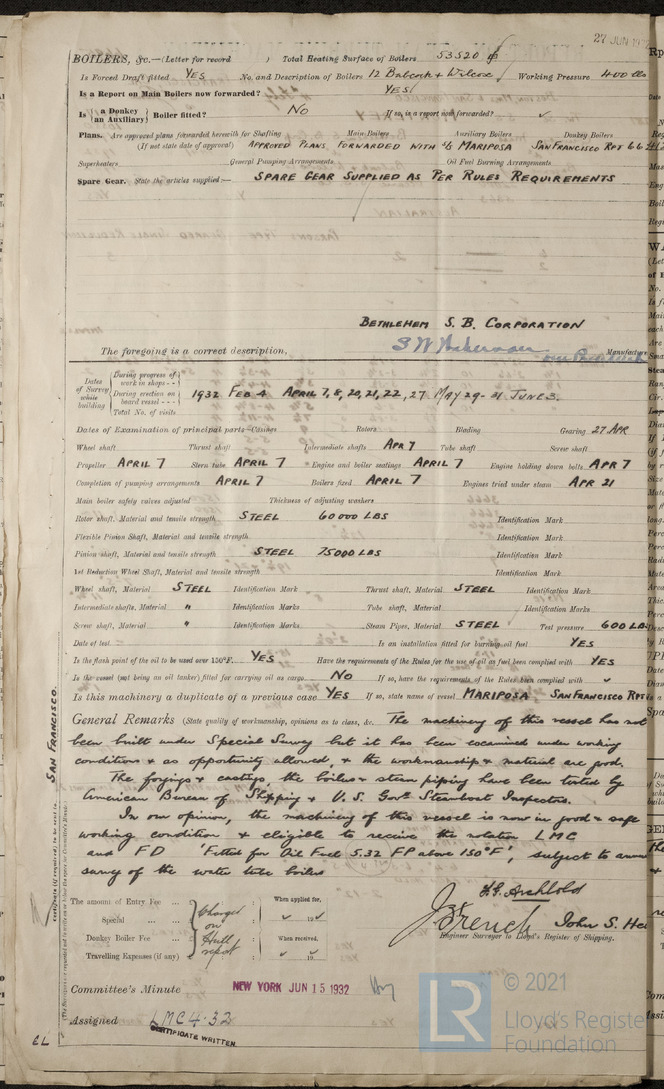 27 JUN 193
BOILERS, &c.—(Letter for record ) Total Heating Surface of Boilers 53520
Is Forced Draft fitted YES No. and Description of Boilers 12 Babcock & Wilcox Working Pressure 400 lbs
Is a Report on Main Boilers now forwarded? YES
Is { a Donkey / an Auxiliary } Boiler fitted? NO If so, is a report now forwarded? ✓
Plans. Are approved plans forwarded herewith for Shafting Main Boilers Auxiliary Boilers Donkey Boilers
(If not state date of approval) APPROVED PLANS FORWARDED WITH MARIPOSA SAN FRANCISCO RPT
Superheaters General Pumping Arrangements Oil Fuel Burning Arrangements
Spare Gear. State the articles supplied:— SPARE GEAR SUPPLIED AS PER RULES REQUIREMENTS
BETHLEHEM S. B. CORPORATION
The foregoing is a correct description, Manufactur
Dates of Survey while building { During progress of work in shops - - / During erection on board vessel - - - } 1932 FEB 4 APRIL 7, 8, 20, 21, 22, 27 MAY 29-31 JUNE 3.
Total No. of visits
Dates of Examination of principal parts—Casings Rotors Blading Gearing 27 APR
Wheel shaft Thrust shaft Intermediate shafts APR 7 Tube shaft Screw shaft
Propeller APRIL 7 Stern tube APRIL 7 Engine and boiler seatings APRIL 7 Engine holding down bolts APR 7
Completion of pumping arrangements APRIL 7 Boilers fixed APRIL 7 Engines tried under steam APR 21
Main boiler safety valves adjusted Thickness of adjusting washers
Rotor shaft, Material and tensile strength STEEL 60000 LBS Identification Mark
Flexible Pinion Shaft, Material and tensile strength Identification Mark
Pinion shaft, Material and tensile strength STEEL 75000 LBS Identification Mark
1st Reduction Wheel Shaft, Material and tensile strength Identification Mark
Wheel shaft, Material STEEL Identification Mark Thrust shaft, Material STEEL Identification Mark
Intermediate shafts, Material " Identification Marks Tube shaft, Material Identification Marks
Screw shaft, Material " Identification Marks Steam Pipes, Material STEEL Test pressure 600 LB
Date of test Is an installation fitted for burning oil fuel YES
Is the flash point of the oil to be used over 150°F. YES Have the requirements of the Rules for the use of oil as fuel been complied with YES
Is the vessel (not being an oil tanker) fitted for carrying oil as cargo NO If so, have the requirements of the Rules been complied with ✓
Is this machinery a duplicate of a previous case YES If so, state name of vessel MARIPOSA SAN FRANCISCO RPT
General Remarks (State quality of workmanship, opinions as to class, &c. The machinery of this vessel has not
been built under Special Survey but it has been examined under working
conditions & as opportunity allowed, & the workmanship & material are good.
The forgings & castings, the boilers & steam piping have been tested by
American Bureau of Shipping & U. S. Govt Steamboat Inspectors.
In our opinion, the machinery of this vessel is now in good & safe
working condition & eligible to receive the notation LMC
and FD 'Fitted for Oil Fuel 5.32 FP above 150°F', subject to annual
survey of the water tube boilers
SAN FRANCISCO.
The amount of Entry Fee ... : When applied for,
Special ... : ✓ 19 ✓
Donkey Boiler Fee ... : When received,
Travelling Expenses (if any) : ✓ 19
Charged on Hull report
J. G. Archbold
French John S. He
Engineer Surveyor to Lloyd's Register of Shipping.
Committee's Minute NEW YORK JUN 15 1932
Assigned LMC 4.32
CERTIFICATE WRITTEN.
LR
© 2021
Lloyd's Registe
Foundation